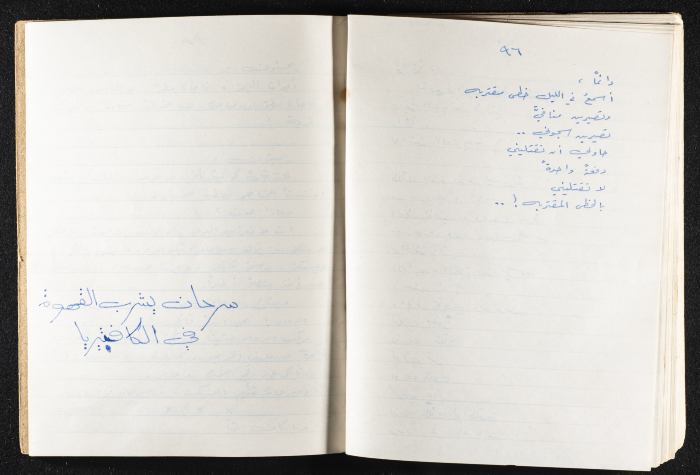 ٩٦
دائماً ،
أسمعُ في الليل خطى مقتربه
وتصيرين منافيَّ
تصيرين سجوني ..
حاولي أن تقتليني
دفعةً واحدةً
لا تقتليني
بالخطى المقتربه ! ..
سرحان يشرب القهوة
في الكافتيريا